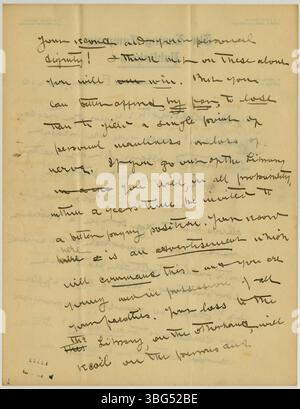 your record and your personal
dignity! I think that on these alone
you will win. But you
can better afford, by far, to lose
than to yield a single point of
personal manliness or loss of
nerve. If you go out of the Library
you will, in all probability,
within a year's time be invited to
a better paying position. Your record
here is an advertisement which
will command this - and you are
young and in possession of all
your faculties. Your loss to the
Library on the other hand will
recoil on the persons and